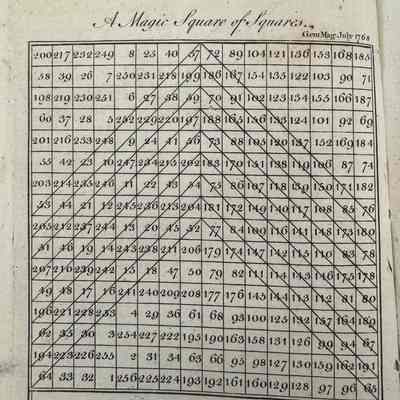 A Magic Square of Squares.
Gent Mag. July 1768
200 217 232 249 8 25 40 57 72 89 104 121 136 153 168 185
58 39 26 7 250 231 218 199 186 167 154 135 122 103 90 71
198 219 230 251 6 27 38 59 70 91 102 123 134 155 166 187
60 37 28 5 252 229 220 197 188 165 156 133 124 101 92 69
201 216 233 248 9 24 41 56 73 88 105 120 137 152 169 184
55 42 23 10 247 234 215 202 183 170 151 138 119 106 87 74
203 214 235 246 11 22 43 54 75 86 107 118 139 150 171 182
53 44 21 12 245 236 213 204 181 172 149 140 117 108 85 76
205 212 237 244 13 20 45 52 77 84 109 116 141 148 173 180
51 46 19 14 243 238 211 206 179 174 147 142 115 110 83 78
207 210 239 242 15 18 47 50 79 82 111 114 143 146 175 178
49 48 17 16 241 240 209 208 177 176 145 144 113 112 81 80
196 221 228 253 4 29 36 61 68 93 100 125 132 157 164 189
62 35 30 3 254 227 222 195 190 163 158 131 126 99 94 67
194 223 226 255 2 31 34 63 66 95 98 127 130 159 162 191
64 33 32 1 256 225 224 193 192 161 160 129 128 97 96 65